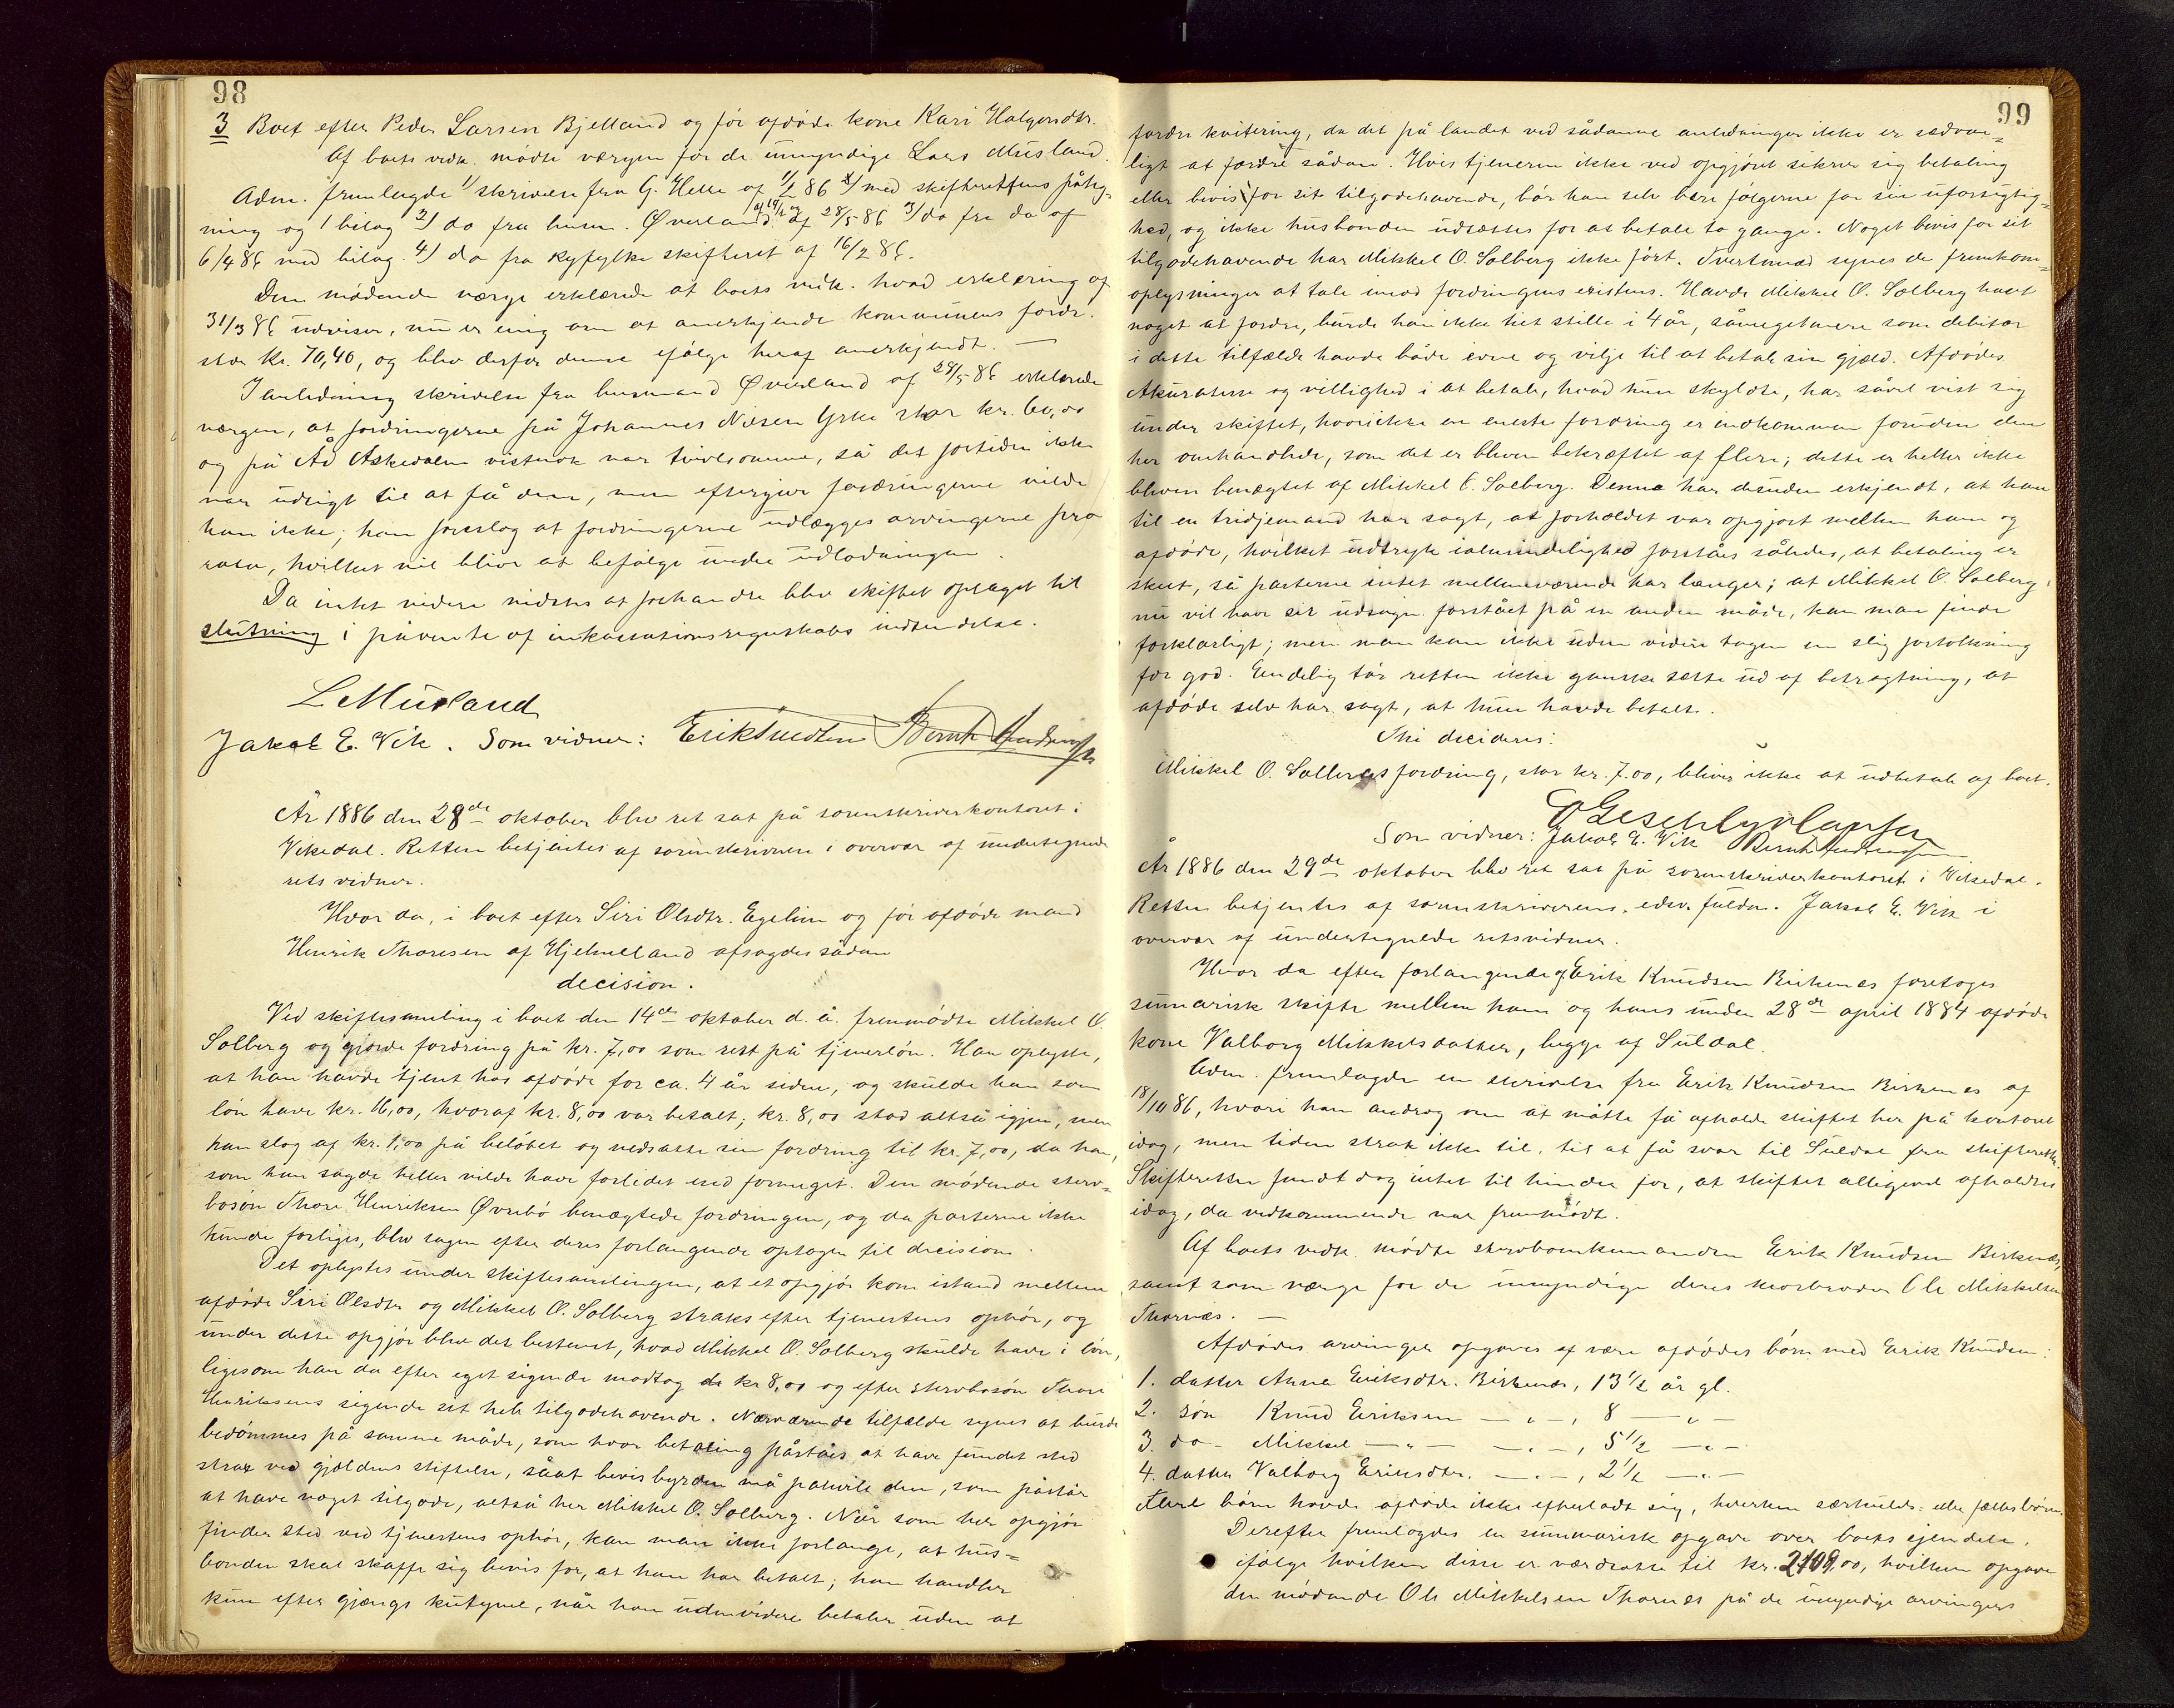 98
3 Boet efter Peder Larsen Bjelland og før afdøde kone Kari Halgersdtr.
Af boets vedk. mødte værgen for de umyndige Lars Musland.
Adm. fremlagde 1/ skrivelse fra G. Helle af 11/2 86 med skifterettens påteg-
ning og 1 bilag 2) do fra husm. Øverland af 19/2 og af 28/5 86 3) do fra do af
6/4 86 med bilag. 4) do fra Ryfylke skifteret af 16/2 86.
Den mødende værge erklærede at boets vedk. hvad erklæring af
31/3 86 udviser, nu er enig om at anerkjende kommunens fordr.
stor kr. 70,40, og blev derfor denne ifølge heraf anerkjendt. —
I anledning skrivelse fra husmand Øverland af 28/5 86 erklærede
værgen, at fordringerne på Johannes Nilsen Yrke stor kr. 60,00
og på Ad Askedalen vistnok var tivlsomme, så det fortiden ikke
var udsigt til at få dem, men eftergive fordringerne vilde
han ikke; han foreslog at fordringerne udlægges arvingerne pro
rata, hvilket vil blive at befølge under udlodningen.
Da intet videre vidstes at forhandle blev skiftet optaget til
slutning i påvente af inkassationsregnskabs indsendelse.
L Musland
Jakob E. Vik. Som vidner: Erik Knudsen Bernh Andersen
År 1886 den 28de oktober blev ret sat på sorenskriverkontoret i
Vikedal. Retten betjentes af sorenskriveren i overvær af undertegnede
retsvidner.
Hvor da, i boet efter Siri Olsdtr. Egelien og før afdøde mand
Henrik Thoresen af Hjelmeland afsagdes sådan
decision.
Ved skiftesamling i boet den 14de oktober d. å. fremmødte Mikkel O.
Solberg og gjorde fordring på kr. 7,00 som rest på tjenerløn. Han oplyste,
at han havde tjent hos afdøde for ca. 4 år siden, og skulde han som
løn have kr. 16,00, hvoraf kr. 8,00 var betalt; kr. 8,00 stod altså igjen, men
han slog af kr. 1,00 på beløbet og nedsatte sin fordring til kr. 7,00, da han,
som han sagde heller vilde have forlidet end formeget. Den mødende sterv-
bosøn Thore Henriksen Øvrebø benægtede fordringen, og da parterne ikke
kunde forliges, blev sagen efter deres forlangende optagen til decision.
Det oplystes under skiftesamlingen, at et opgjør kom istand mellem
afdøde Siri Olsdtr og Mikkel O. Solberg straks efter tjenestens ophør, og
under dette opgjør blev det bestemt, hvad Mikkel O. Solberg skulde have i løn,
ligesom han da efter eget sigende modtog de kr 8,00 og efter stervbosøn Thore
Henriksens sigende sit hele tilgodehavende. Nærværende tilfælde synes at burde
bedømmes på samme måde, som hvor betaling påståes at have fundet sted
strax ved gjældens stiftelse, såat bevisbyrden må påhvile den, som påstår
at have noget tilgode, altså her Mikkel O. Solberg. Når som her opgjør
finder sted ved tjenestens ophør, kan man ikke forlange, at hus-
bonden skal skaffe sig bevis for, at han har betalt; han handler
kun efter gjængs kutyme, når han udenvidere betaler uden at
99
fordre kvitering, da det på landet ved sådanne anledninger ikke er sædvan-
ligt at fordre sådan. Hvis tjeneren ikke ved opgjøret sikrer sig betaling
eller bevis for sit tilgodehavende, bør han selv bære følgerne for sin uforsigtig-
hed, og ikke husbonden udsættes for at betale to gange. Noget bevis for sit
tilgodehavende har Mikkel O. Solberg ikke ført. Tvertimod synes de fremkom-
oplysninger at tale imod fordringens existens. Havde Mikkel O. Solberg havt
noget at fordre, burde han ikke tiet stille i 4 år, såmegetmere som debitor
i dette tilfælde havde både evne og vilje til at betale sin gjæld. Afdødes
Akuratesse og villighed i at betale, hvad hun skyldte, har såvel vist sig
under skiftet, hvori ikke en eneste fordring er indkommen foruden den
her omhandlede, som det er bleven bekræftet af flere; dette er heller ikke
bleven benægtet af Mikkel O. Solberg. Denne har desuden erkjendt, at han
til en tridjemand har sagt, at forholdet var opgjort mellem ham og
afdøde, hvilket udtryk ialmindelighed forståes således, at betaling er
skeet, så parterne intet mellemværende har længer; at Mikkel O. Solberg
nu vil have sit udsagn forstået på en anden måde, kan man finde
forklarligt; men man kan ikke uden videre tagen en slig fortolkning
for god. Endelig tør retten ikke ganske sætte ud af betragtning, at
afdøde selv har sagt, at hun havde betalt.
Thi decideres:
Mikkel O. Solbergs fordring, stor kr. 7.00, bliver ikke at udbetale af boet.
Som vidner: Jakob E. Vik Bernh Andersen
År 1886 den 29de oktober blev ret sat på sorenskriverkontoret i Vikedal.
Retten betjentes af sorenskriverens edsv. fuldm. Jakob E. Vik i
overvær af undertegnede retsvidner.
Hvor da efter forlangende af Erik Knudsen Birkenes foretoges
summarisk skifte mellem ham og hans under 28de april 1884 afdøde
kone Valborg Mikkelsdatter, begge af Suldal.
Adm. fremlagde en skrivelse fra Erik Knudsen Birkenes af
18/10 86, hvori han androg om at måtte få afholde skiftet her på kontoret
idag, men tiden strak ikke til, til at få svar til Suldal fra skifteretten.
Skifteretten fandt dog intet til hinder for, at skiftet alligevel afholdtes
idag, da vedkommende var fremmødt.
Af boets vedk. mødte stervboenkemanden Erik Knudsen Birkenæs,
samt som værge for de umyndige deres morbroder Ole Mikkelsen
Thornæs. —
Afdødes arvinger opgaves at være afdødes børn med Erik Knudsen:
1. datter Anna Eriksdtr. Birkenæs, 13 1/2 år gl.
2. søn Knud Eriksen — " —, 8 — " —
3. do - Mikkel — " — — " —, 5 1/2 — " —
4. datter Valborg Eriksdtr. — " —, 2 1/2 — " —
Flere børn havde afdøde ikke efterladt sig, hverken særkulds- eller fællesbørn.
Derefter fremlagdes en summarisk opgave over boets ejendele,
ifølge hvilken disse er værdsatte til kr. 2108,00, hvilken opgave
den mødende Ole Mikkelsen Thornæs på de umyndige arvingers